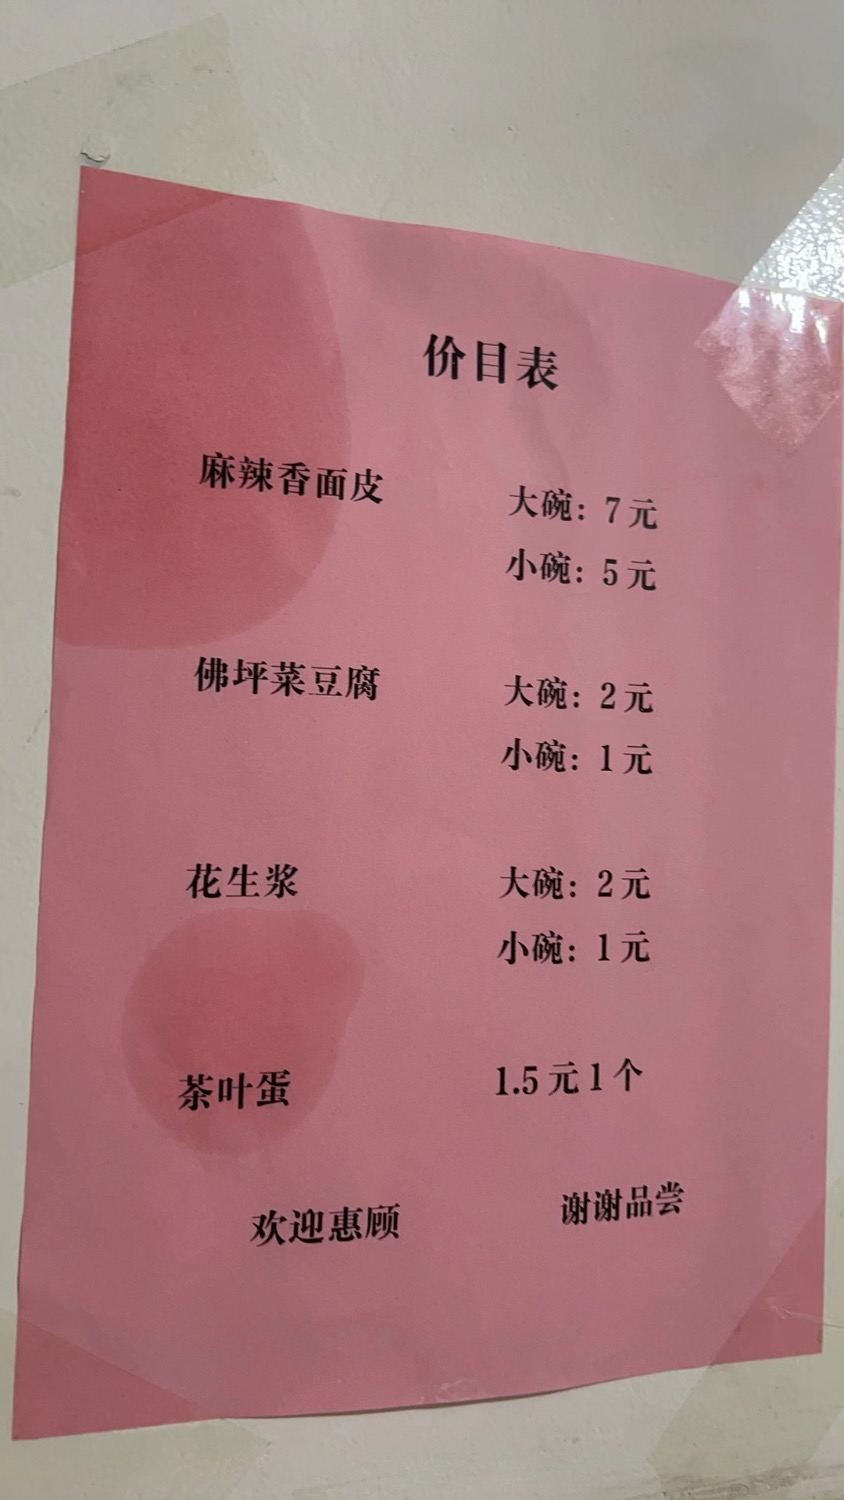 价目表
麻辣香面皮
大碗：7元
小碗：5元
佛坪菜豆腐
大碗：2元
小碗：1元
花生浆
大碗：2元
小碗：1元
茶叶蛋 1.5元1个
欢迎惠顾 谢谢品尝